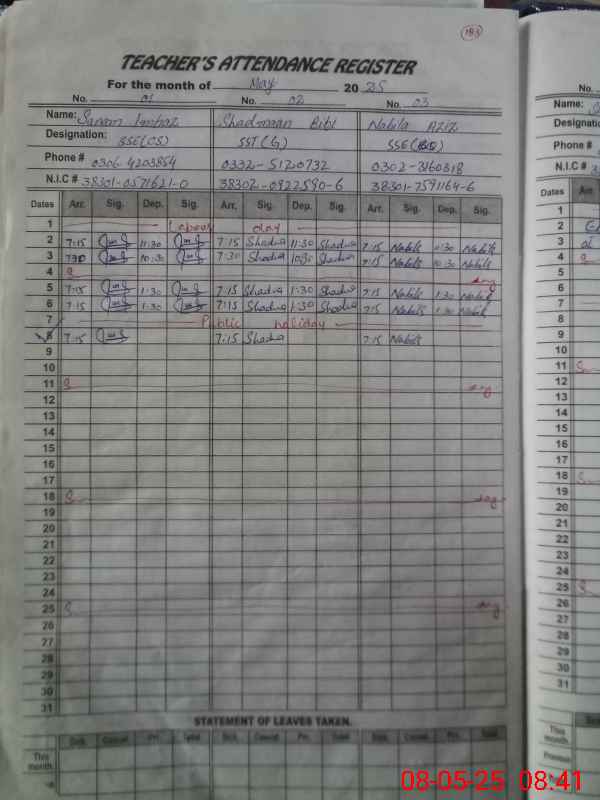 183
TEACHER'S ATTENDANCE REGISTER
For the month of May 2025
No. 01 No. 02 No. 03
Name: Sanam Imtiaz Shadmaan Bibi Nabila Aziz
Designation: SSE(CS) SST(G) SSE
Phone # 0306-4203854 0332-5120732 0302-3160318
N.I.C # 38301-0571621-0 38302-0922590-6 38301-7591164-6
Dates Arr. Sig. Dep. Sig. Arr. Sig. Dep. Sig. Arr. Sig. Dep. Sig.
1 Labour day
2 7:15 11:30 7:15 Shadma 11:30 Shadma 7:15 Nabila 11:30 Nabila
3 7:30 10:30 7:30 Shadma 10:30 Shadma 7:15 Nabila 10:30 Nabila
4 S ay
5 7:15 1:30 7:15 Shadma 1:30 Shadma 7:15 Nabila 1:30 Nabila
6 7:15 1:30 7:15 Shadma 1:30 Shadma 7:15 Nabila 1:30 Nabila
7 Public holiday
8 7:15 7:15 Shadma 7:15 Nabila
9
10
11 S ay
12
13
14
15
16
17
18 S ay
19
20
21
22
23
24
25 S ay
26
27
28
29
30
31
STATEMENT OF LEAVES TAKEN.
Sick Casual Pri. Total Sick Casual Pri. Total Sick Casual Pri. Total
This month.
No.
Name:
Designation
Phone #
N.I.C #
Dates Arr.
1
2
3
4
5
6
7
8
9
10
11 S
12
13
14
15
16
17
18 S
19
20
21
22
23
24
25 S
26
27
28
29
30
31
This month
Previous
08-05-25 08:41